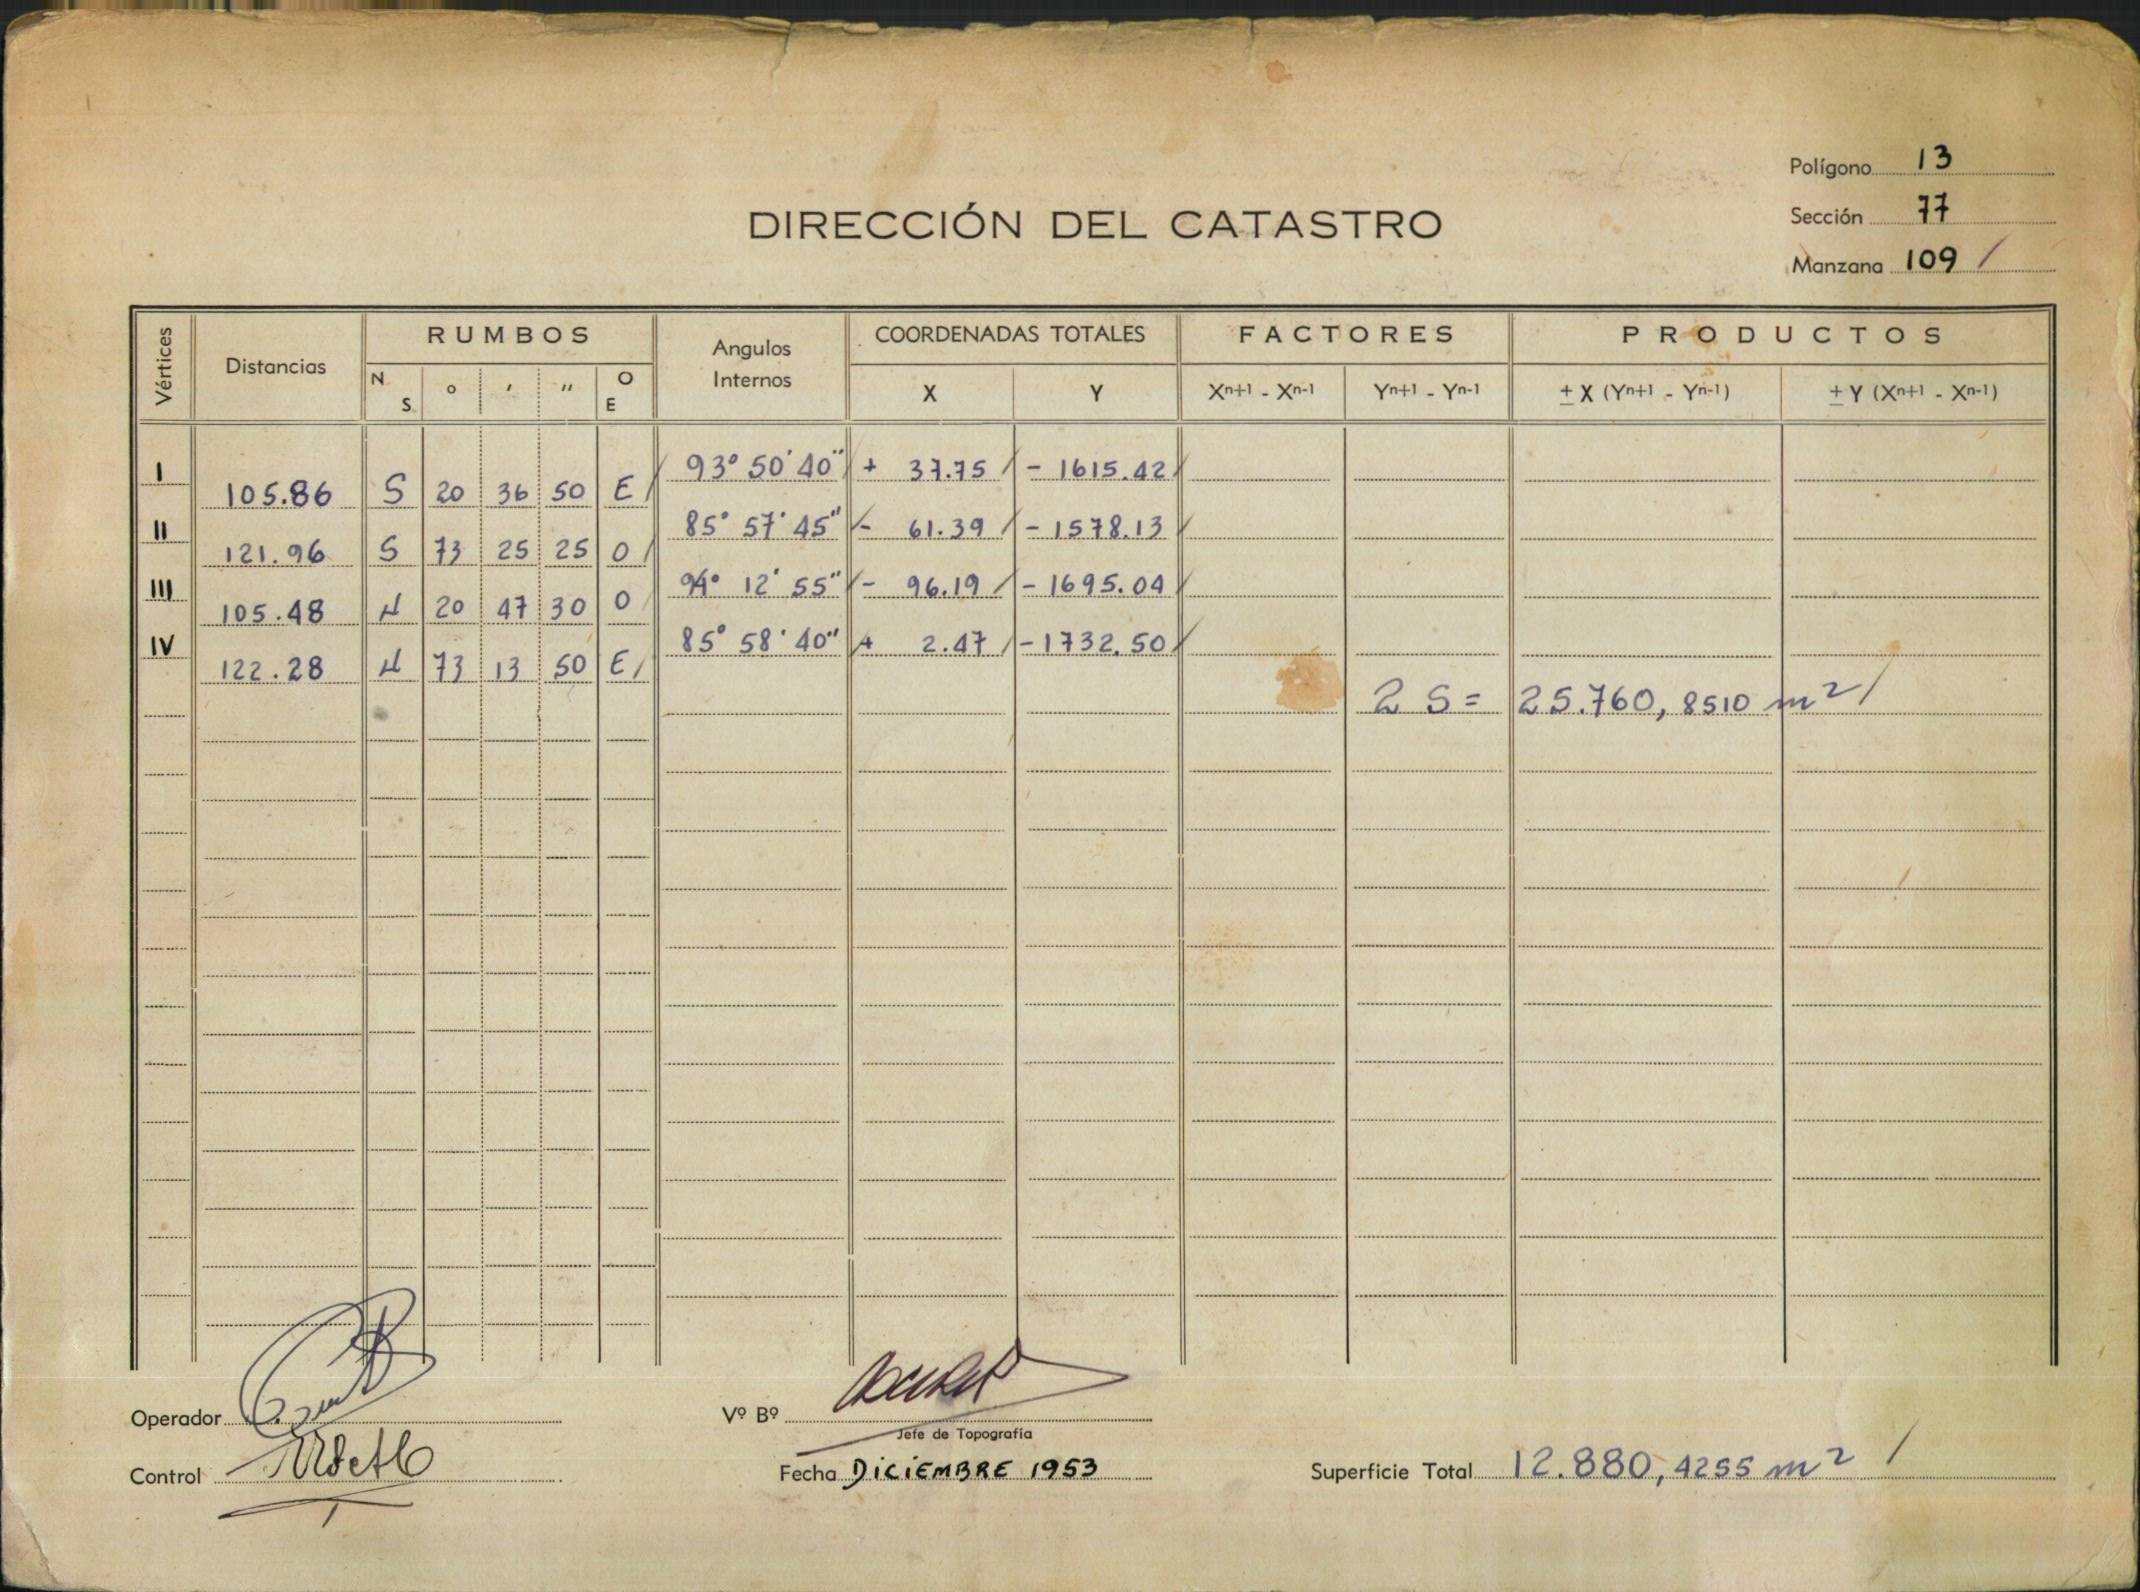 Polígono 13
Sección 77
Manzana 109 /
DIRECCIÓN DEL CATASTRO
Vértices Distancias RUMBOS Angulos Internos COORDENADAS TOTALES FACTORES PRODUCTOS
N S ° ' " O E X Y Xn+1 - Xn-1 Yn+1 - Yn-1 ± X (Yn+1 - Yn-1) ± Y (Xn+1 - Xn-1)
I 93° 50' 40" + 37.75 / - 1615.42 /
105.86 S 20 36 50 E /
II 85° 57' 45" / - 61.39 / - 1578.13 /
121.96 S 73 25 25 O /
III 94° 12' 55" / - 96.19 / - 1695.04 /
105.48 N 20 47 30 O /
IV 85° 58' 40" / + 2.47 / - 1732.50 /
122.28 N 73 13 50 E /
2 S = 25.760, 8510 m² /
Operador
Vº Bº
Jefe de Topografía
Control
Fecha DICIEMBRE 1953
Superficie Total 12.880, 4255 m² /